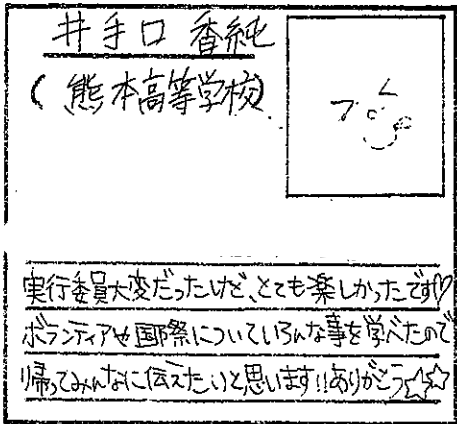 井手口 香純
(熊本高等学校)
実行委員大変だったけど、とても楽しかったです♡
ボランティアや国際について いろんな事を学べたので
帰ってみんなに伝えたいと思います!!ありがとう☆☆